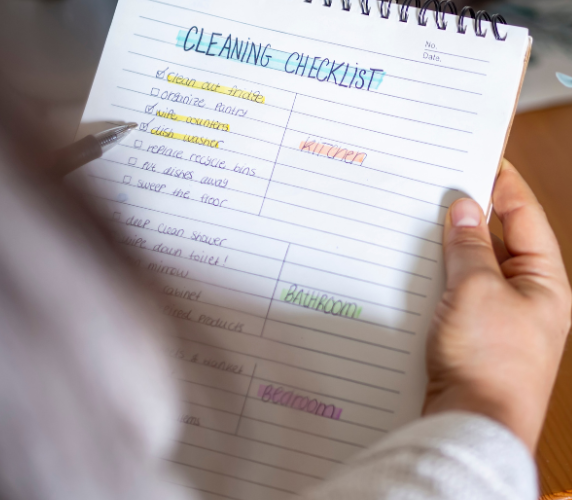 No.
Date.
CLEANING CHECKLIST
clean out fridge
organize pantry
wipe counters
dish washer
replace recycle bins
put dishes away
sweep the floor
KITCHEN
deep clean shower
wipe down toilet!
mirrow
BATHROOM
products
Bedroom